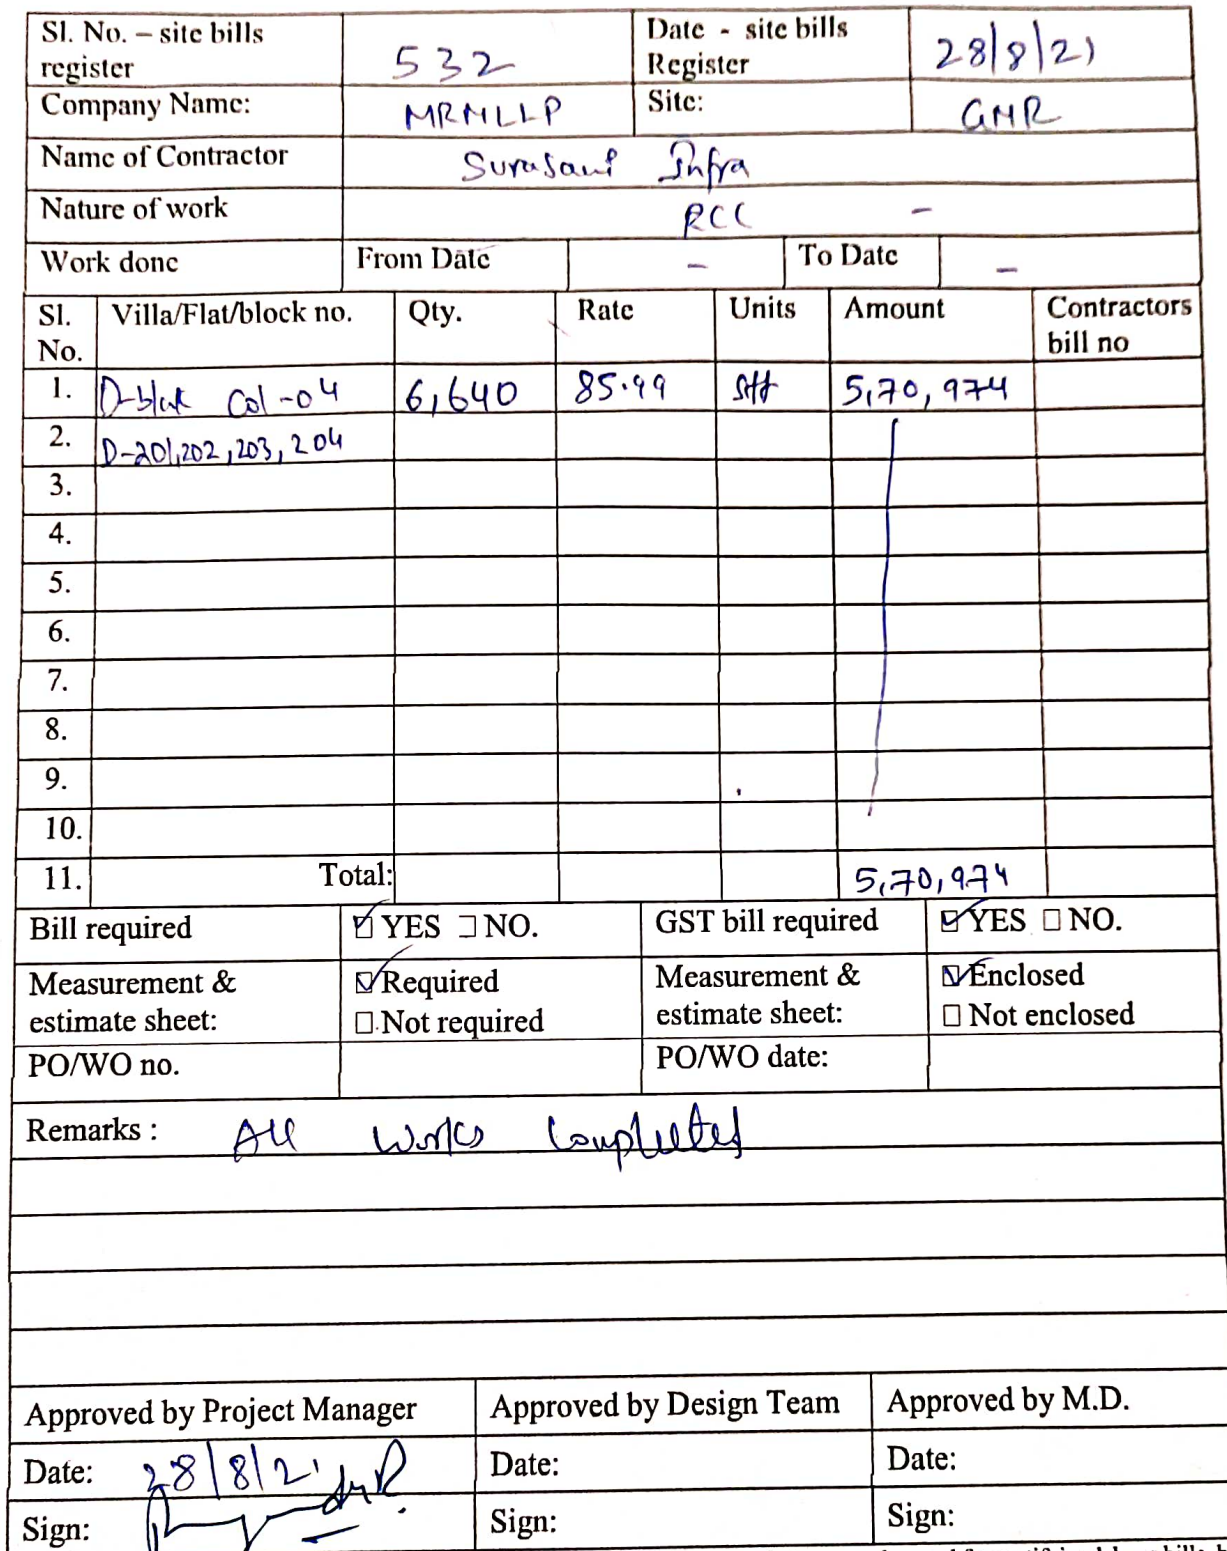 Sl. No. – site bills register 532 Date - site bills Register 28/8/21
Company Name: MRMLLP Site: GMR
Name of Contractor Surasani Infra
Nature of work RCC -
Work done From Date - To Date -
Sl. No. Villa/Flat/block no. Qty. Rate Units Amount Contractors bill no
1. D-block Col-04 6,640 85.99 sft 5,70,974
2. D-201,202,203,204
3.
4.
5.
6.
7.
8.
9.
10.
11. Total: 5,70,974
Bill required ☑ YES ☐ NO. GST bill required ☑ YES ☐ NO.
Measurement & estimate sheet: ☑ Required ☐ Not required Measurement & estimate sheet: ☑ Enclosed ☐ Not enclosed
PO/WO no. PO/WO date:
Remarks : All works Completed
Approved by Project Manager Approved by Design Team Approved by M.D.
Date: 28/8/21 Date: Date:
Sign: Sign: Sign: